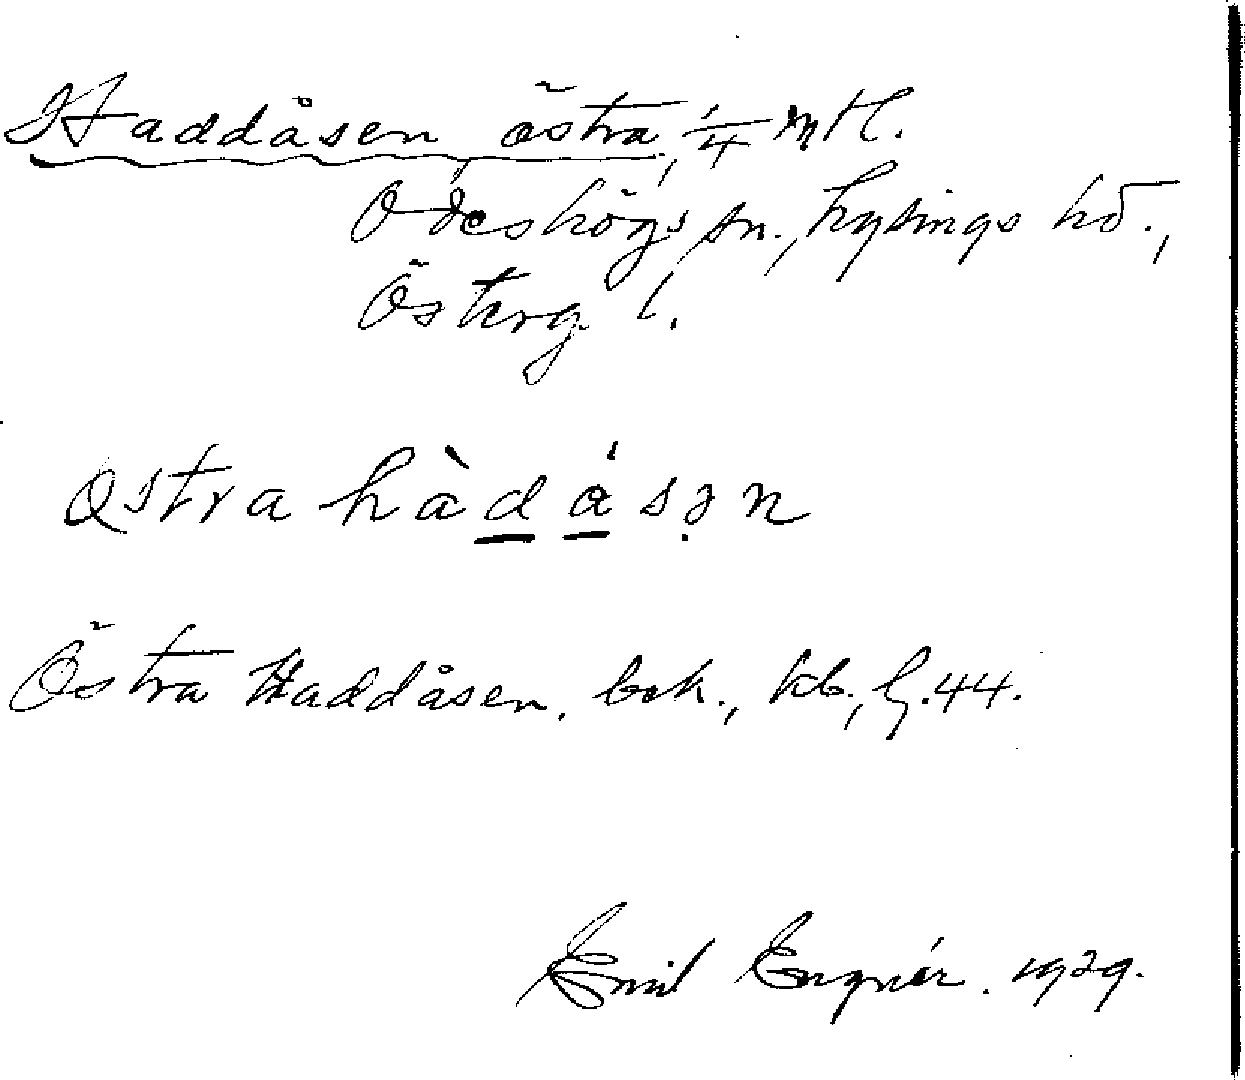 Haddåsen, östra, 1/4 mtl.
Ödeshögs sn., Lysings hd.,
Österg. l.
østra hàdȧ́sən
Östra Haddåsen, bok., kb, f. 44.
Emil Engnér. 1929.